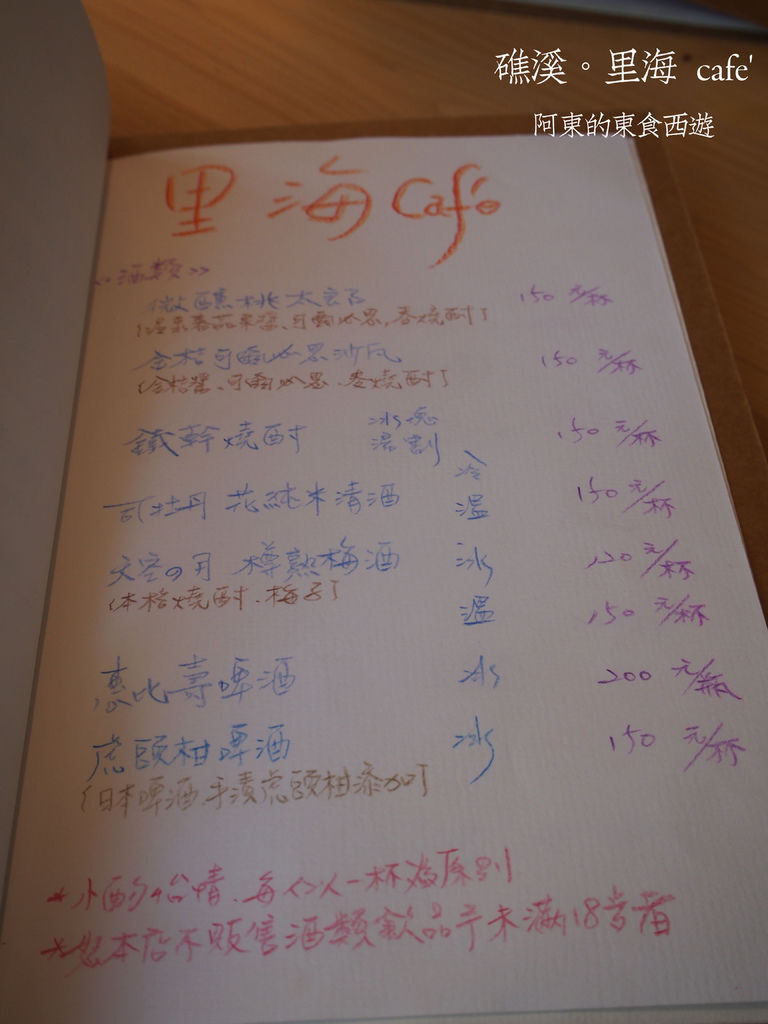 礁溪。里海 cafe'
阿東的東食西遊
里海Café
<<酒類>>
微醺桃太郎 150元/杯
(溫泉蕃茄果醬、可爾必思、麥燒酎)
金桔可爾必思沙瓦 150元/杯
(金桔醬、可爾必思、麥燒酎)
鐵幹燒酎 冰塊 溫割 150元/杯
司牡丹 花純米清酒 冷 溫 150元/杯
天空の月 樽熟梅酒 冰 120元/杯
(本格燒酎、梅子) 溫 150元/杯
惠比壽啤酒 冰 200元/瓶
虎頭柑啤酒 冰 150元/杯
(日本啤酒、手漬虎頭柑添加)
*小酌怡情、每人一杯為原則
*本店不販售酒類飲品予未滿18歲者